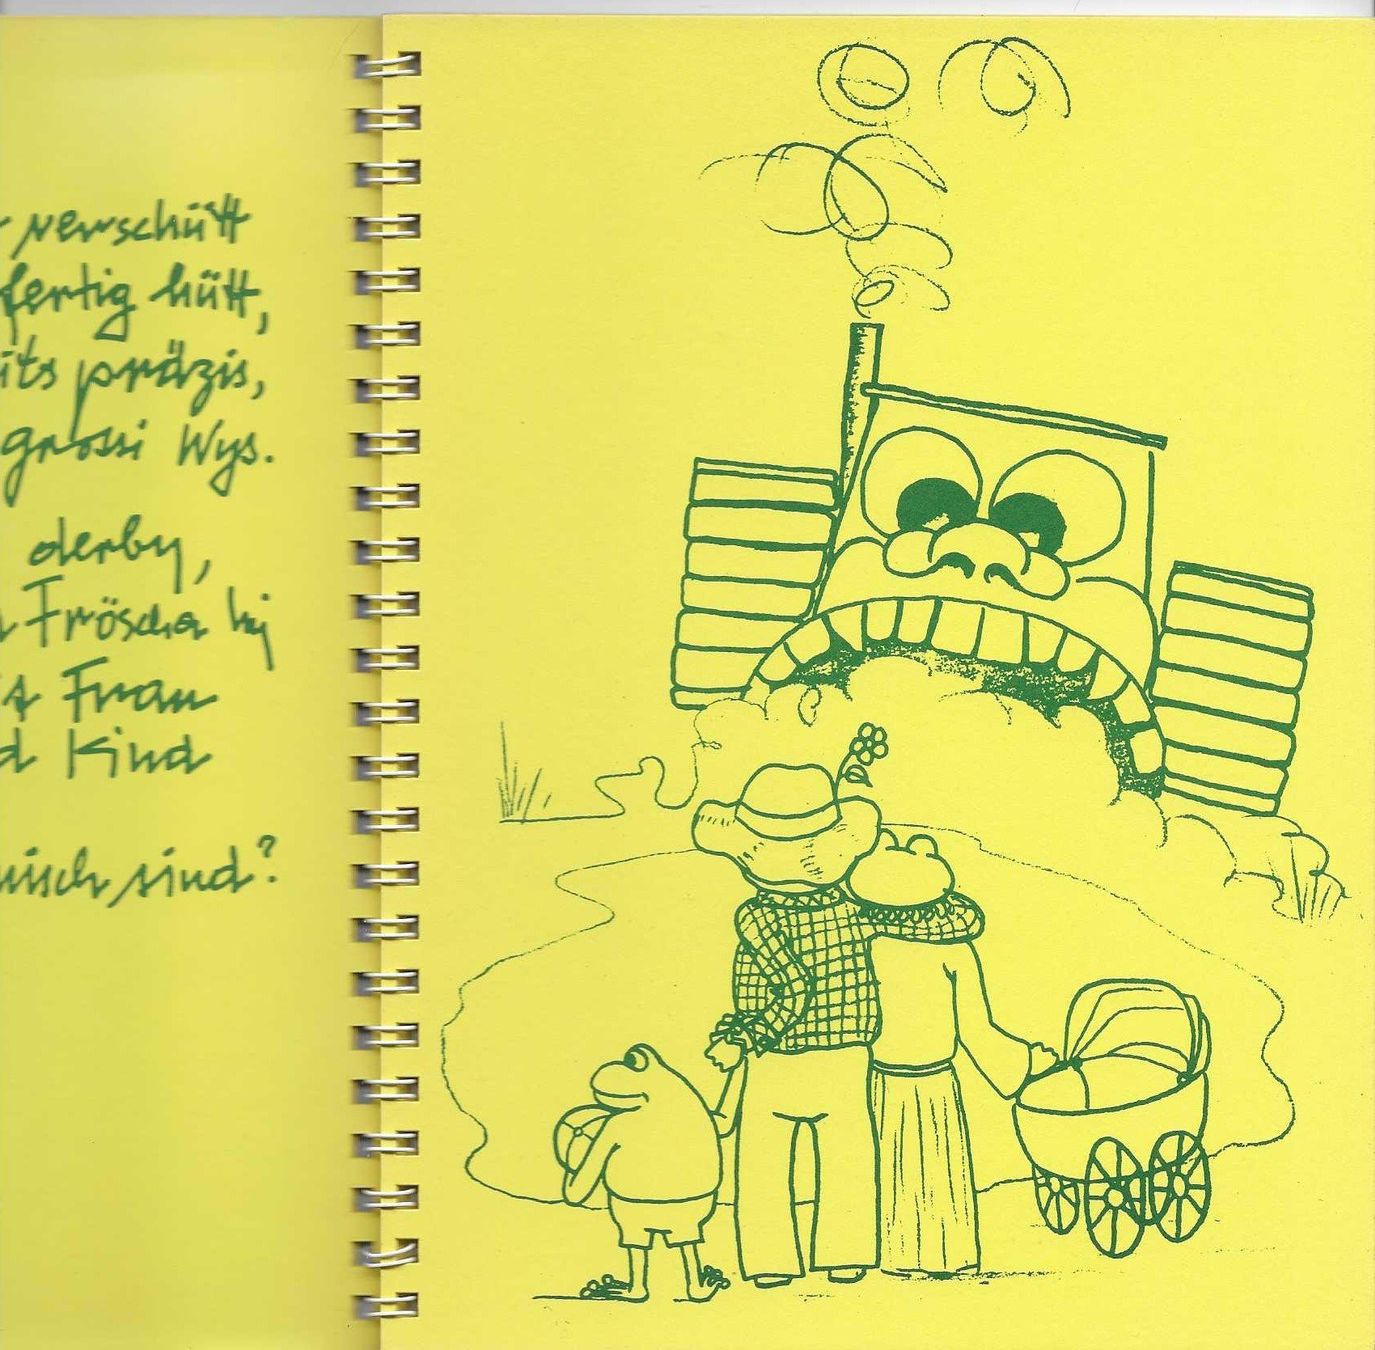 verschütt
fertig hütt,
präzis,
grossi Wys.
derby,
Fröscha hy
Frau
d Kind
sind?